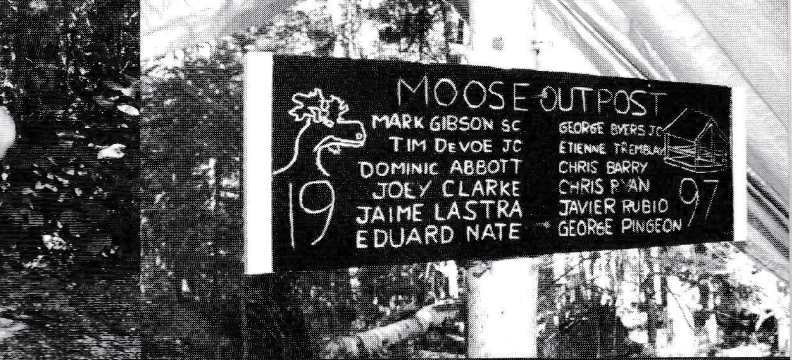 MOOSE OUTPOST
MARK GIBSON SC
TIM DEVOE JC
DOMINIC ABBOTT
JOEY CLARKE
JAIME LASTRA
EDUARD NATE
GEORGE BYERS JC
ETIENNE TREMBLAY
CHRIS BARRY
CHRIS RYAN
JAVIER RUBIO
GEORGE PINGEON
19 97